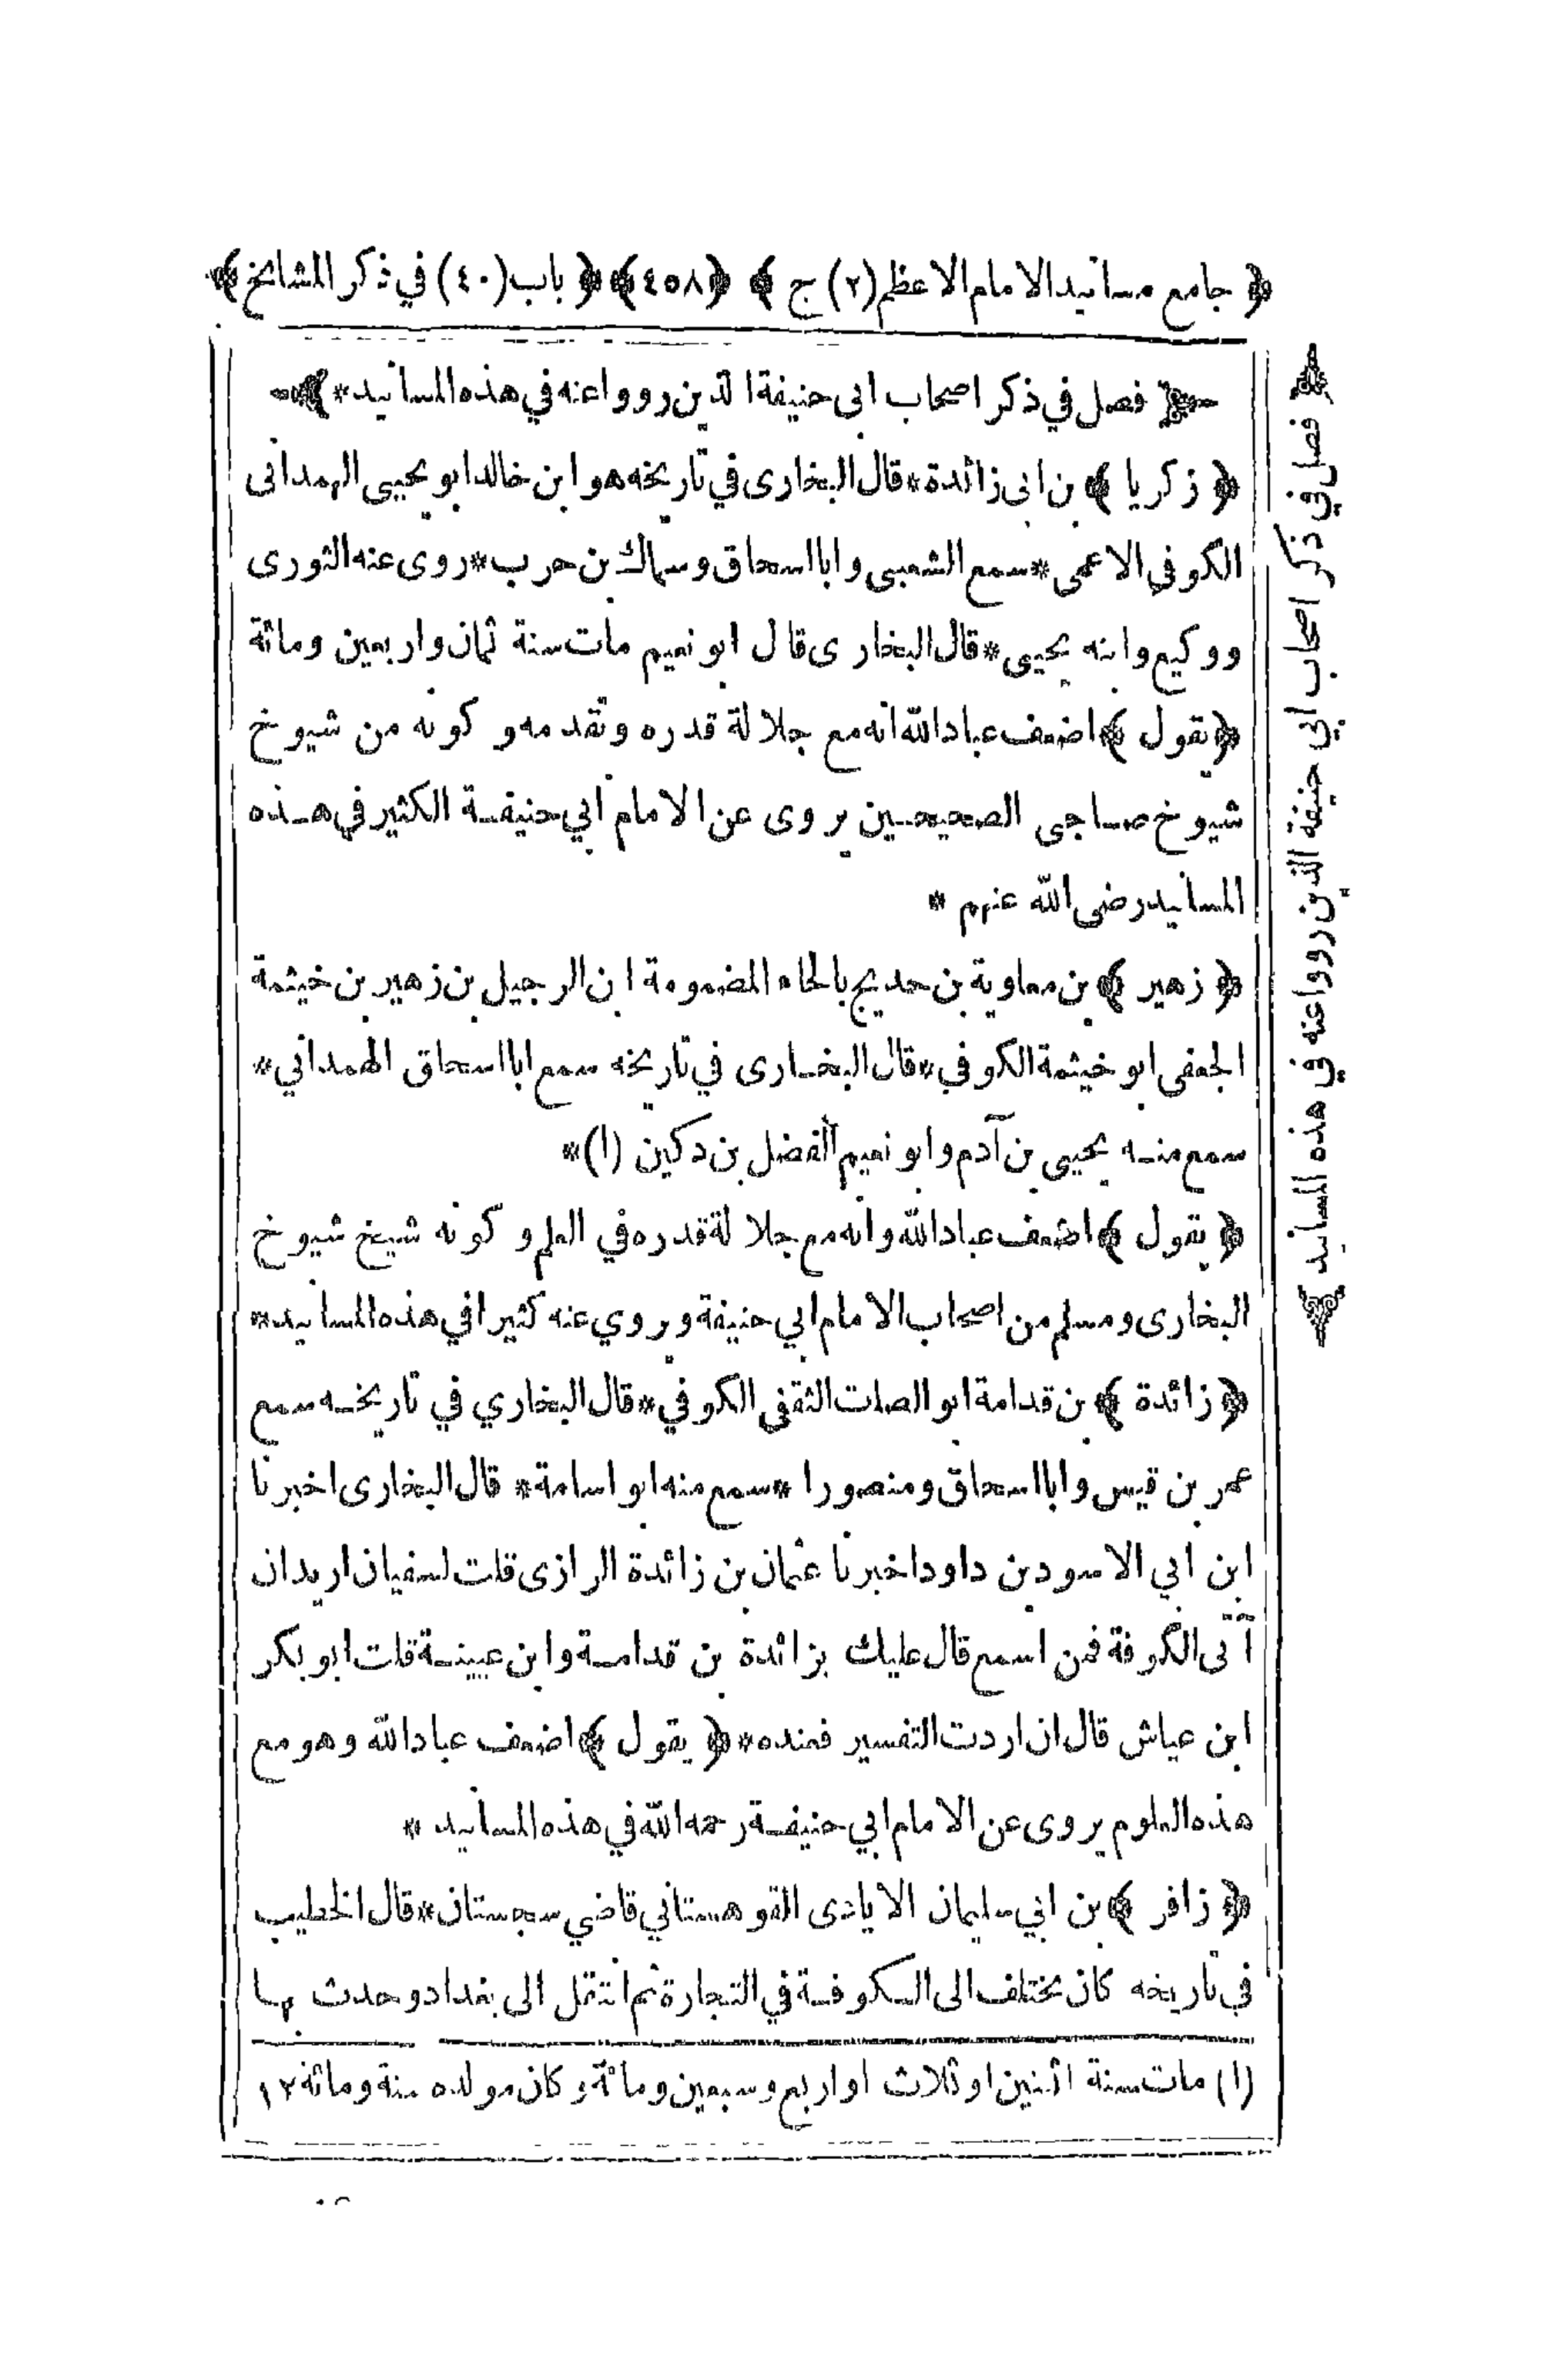 ﴿ جامع مسانيد الامام الاعظم (٢) ج ﴾ ﴿٤٥٨﴾ ﴿ باب (٤٠) في ذكر المشايخ ﴾
﴿ فصل في ذكر اصحاب ابى حنيفة الذين رووا عنه في هذه المسانيد * ﴾
﴿ زكريا ﴾ بن ابى زائدة * قال البخارى في تاريخه هو ابن خالد ابو يحيى الهمدانى
الكوفي الاعمى * سمع الشعبى وابا اسحاق وسماك بن حرب * روى عنه الثورى
ووكيع وابنه يحيى * قال البخارى قال ابو نعيم مات سنة ثمان واربعين ومائة
﴿ يقول ﴾ اضعف عباد الله انه مع جلالة قدره وتقدمه و كونه من شيوخ
شيوخ صاحبى الصحيحين يروى عن الامام ابي حنيفة الكثير في هذه
المسانيد رضى الله عنهم *
﴿ زهير ﴾ بن معاوية بن حديج بالحاء المضمومة ابن الرجيل بن زهير بن خيثمة
الجعفى ابو خيثمة الكوفي * قال البخارى في تاريخه سمع ابا اسحاق الهمداني *
سمع منه يحيى بن آدم وابو نعيم الفضل بن دكين (١) *
﴿ يقول ﴾ اضعف عباد الله وانه مع جلالة قدره في العلم و كونه شيخ شيوخ
البخارى ومسلم من اصحاب الامام ابي حنيفة ويروي عنه كثيرا في هذه المسانيد *
﴿ زائدة ﴾ بن قدامة ابو الصلت الثقفى الكوفي * قال البخاري في تاريخه سمع
عمر بن قيس وابا اسحاق ومنصورا * سمع منه ابو اسامة * قال البخارى اخبرنا
ابن ابي الاسود بن داود اخبرنا عثمان بن زائدة الرازى قلت لسفيان اريد ان
آتى الكوفة فمن اسمع قال عليك بزائدة بن قدامة وابن عيينة قلت ابو بكر
ابن عياش قال ان اردت التفسير فعنده * ﴿ يقول ﴾ اضعف عباد الله وهو مع
هذه العلوم يروى عن الامام ابي حنيفة رحمه الله في هذه المسانيد *
﴿ زافر ﴾ بن ابي سليمان الايادى القوهستاني قاضي سجستان * قال الخطيب
في تاريخه كان يختلف الى الكوفة في التجارة ثم انتقل الى بغداد وحدث بها
(١) مات سنة اثنين او ثلاث او اربع وسبعين ومائة وكان مولده سنة ومائة ١٢
﴿ فصل في ذكر اصحاب ابي حنيفة الذين رووا عنه في هذه المسانيد ﴾